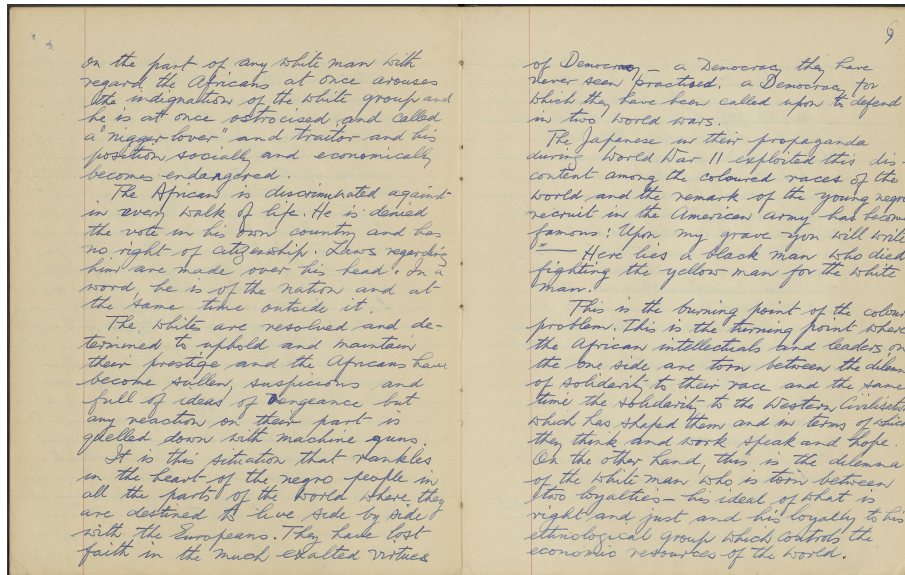 on the part of any white man with
regard the Africans at once arouses
the indignation of the white group and
he is at once ostrocised and called
a "nigger lover" and traitor and his
position socially and economically
becomes endangered.
The African is discriminated against
in every walk of life. He is denied
the vote in his own country and has
no right of citizenship. Laws regarding
him are made over his head. on a
word, he is of the nation and at
the same time outside it.
The whites are resolved and de-
termined to uphold and maintain
their prestige and the Africans have
become sullen, suspicious and
full of ideas of vengeance but
any reaction on their part is
quelled down with machine guns.
It is this situation that rankles
in the heart of the negro people in
all the parts of the world where they
are destined to live side by side
with the Europeans. They have lost
faith in the much exalted virtues
6
of Democracy - a Democracy they have
never seen practised. a Democracy for
which they have been called upon to defend
in two world wars.
The Japanese in their propaganda
during World War II exploited this dis-
content among the coloured races of the
world, and the remark of the young negro
recruit in the American army has become
famous! Upon my grave you will write
" — Here lies a black man who died
fighting the yellow man for the white
man.
This is the burning point of the colour
problem. This is the turning point where
the African intellectuals and leaders, on
the one side, are torn between the dilemma
of solidarity to their race and the same
time the solidarity to the Western Civilisation
which has shaped them and in terms of which
they think and work speak and hope.
On the other hand, this is the dilemma
of the white man who is torn between
two loyalties - his ideal of what is
right and just and his loyalty to his
ethnological group which controls the
economic resources of the world.